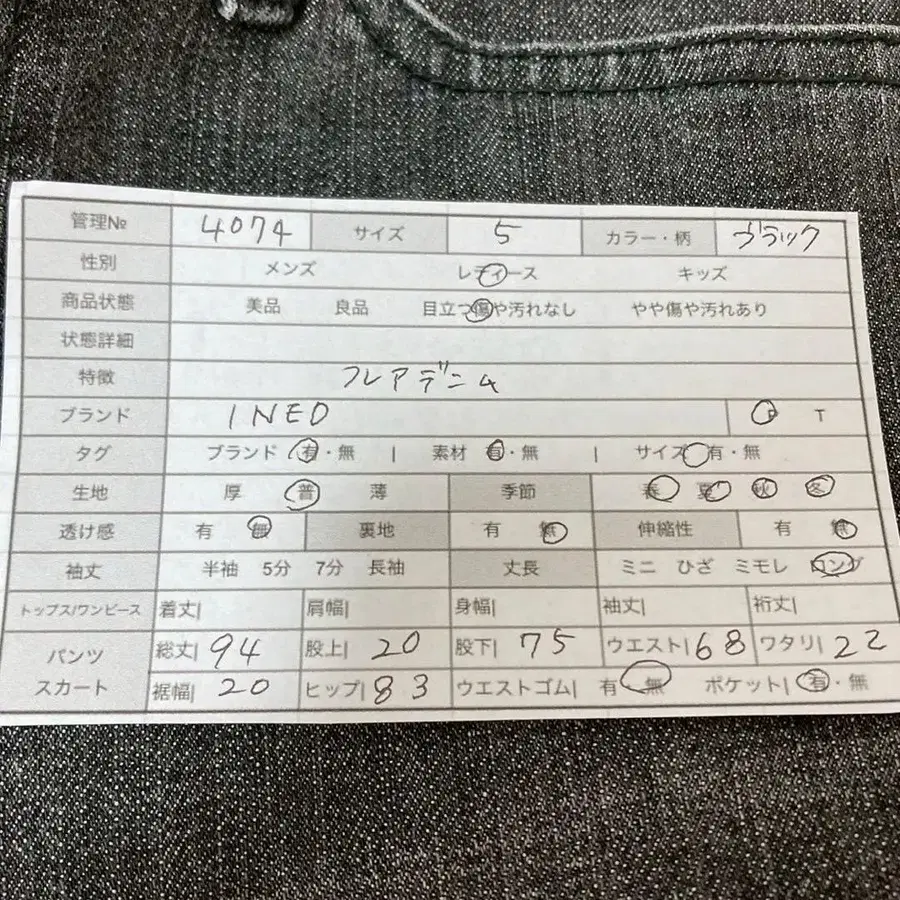 管理№ 4074 サイズ 5 カラー・柄 ブラック
性別 メンズ レディース キッズ
商品状態 美品 良品 目立つ傷や汚れなし やや傷や汚れあり
状態詳細
特徴 フレアデニム
ブランド INED P T
タグ ブランド 有・無 | 素材 有・無 | サイズ 有・無
生地 厚 普 薄 季節 春 夏 秋 冬
透け感 有 無 裏地 有 無 伸縮性 有 無
袖丈 半袖 5分 7分 長袖 丈長 ミニ ひざ ミモレ ロング
トップス/ワンピース 着丈| 肩幅| 身幅| 袖丈| 裄丈|
パンツ スカート 総丈| 94 股上| 20 股下| 75 ウエスト| 68 ワタリ| 22
裾幅| 20 ヒップ| 83 ウエストゴム| 有・無 ポケット| 有・無